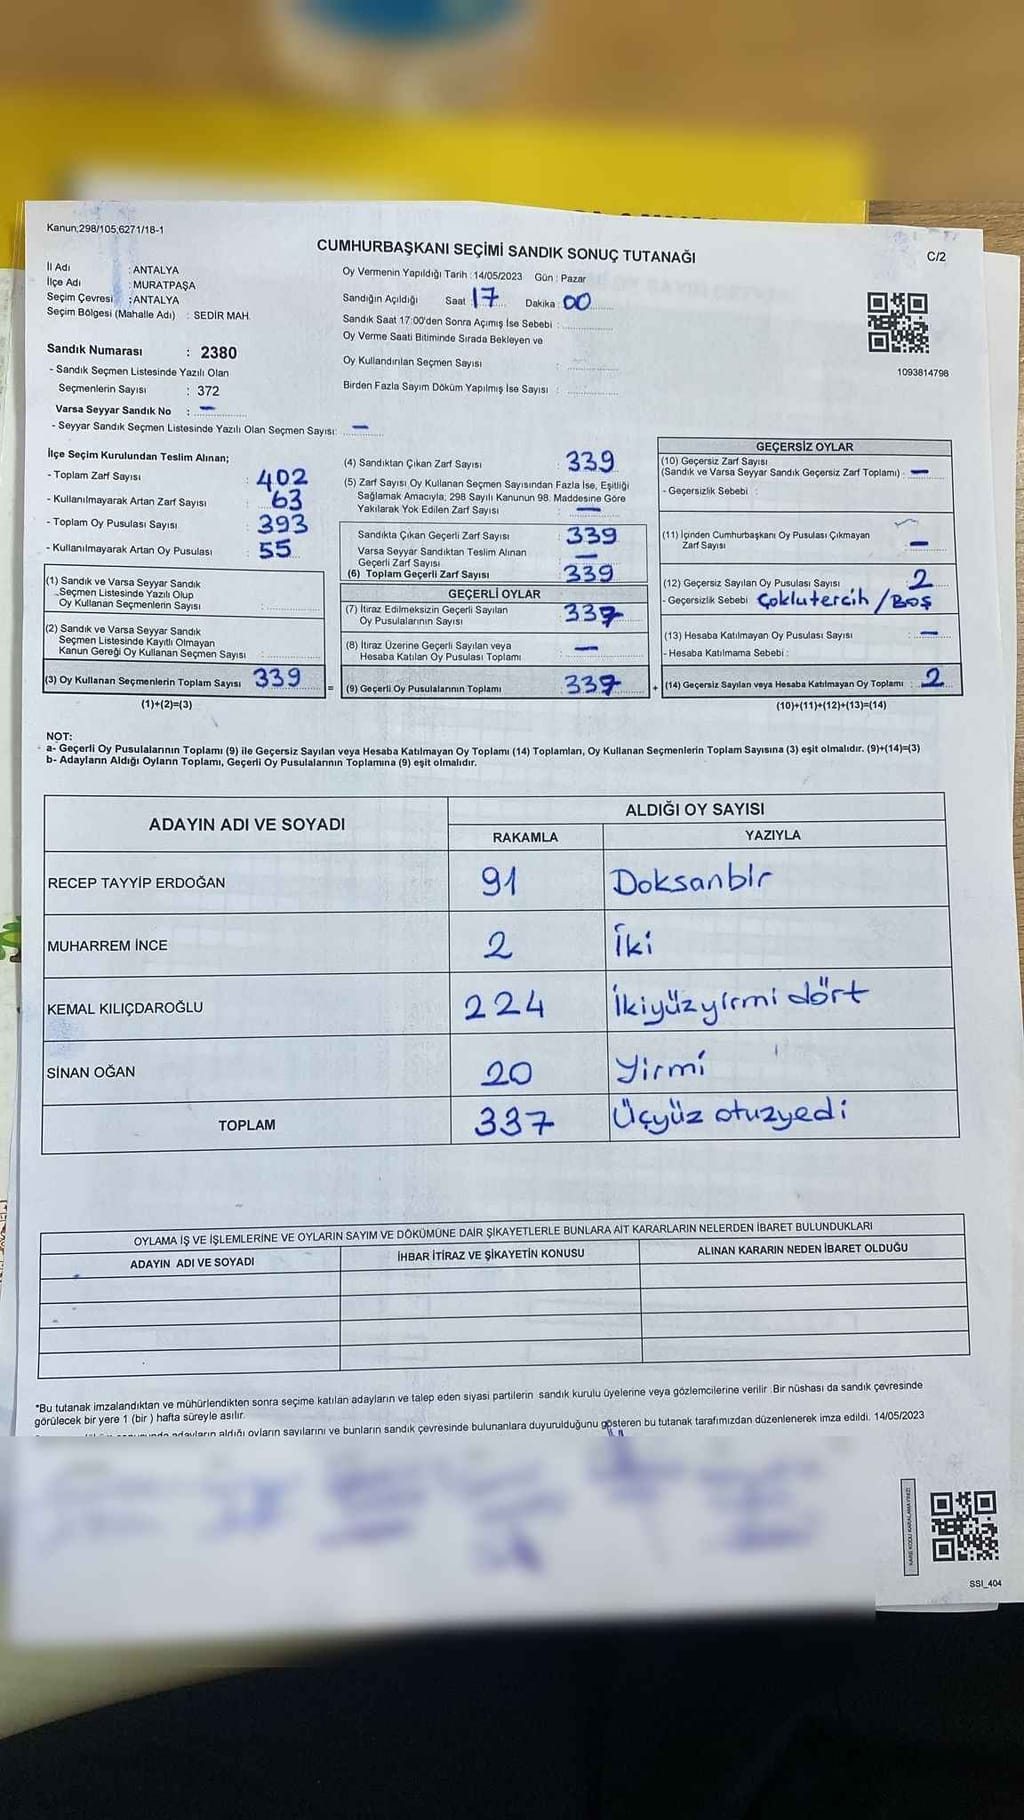 Kanun,298/105,6271/18-1
CUMHURBAŞKANI SEÇİMİ SANDIK SONUÇ TUTANAĞI
C/2
İl Adı : ANTALYA
İlçe Adı : MURATPAŞA
Seçim Çevresi : ANTALYA
Seçim Bölgesi (Mahalle Adı) : SEDİR MAH.
Oy Vermenin Yapıldığı Tarih : 14/05/2023 Gün : Pazar
Sandığın Açıldığı Saat : 17 Dakika : 00
Sandık Saat 17:00'den Sonra Açımış İse Sebebi :
Oy Verme Saati Bitiminde Sırada Bekleyen ve
Oy Kullandırılan Seçmen Sayısı :
Birden Fazla Sayım Döküm Yapılmış İse Sayısı :
1093814798
Sandık Numarası : 2380
- Sandık Seçmen Listesinde Yazılı Olan
Seçmenlerin Sayısı : 372
Varsa Seyyar Sandık No : —
- Seyyar Sandık Seçmen Listesinde Yazılı Olan Seçmen Sayısı: —
İlçe Seçim Kurulundan Teslim Alınan;
- Toplam Zarf Sayısı : 402
- Kullanılmayarak Artan Zarf Sayısı : 63
- Toplam Oy Pusulası Sayısı : 393
- Kullanılmayarak Artan Oy Pusulası : 55
(1) Sandık ve Varsa Seyyar Sandık
Seçmen Listesinde Yazılı Olup
Oy Kullanan Seçmenlerin Sayısı :
(2) Sandık ve Varsa Seyyar Sandık
Seçmen Listesinde Kayıtlı Olmayan
Kanun Gereği Oy Kullanan Seçmen Sayısı :
(3) Oy Kullanan Seçmenlerin Toplam Sayısı 339
(1)+(2)=(3)
(4) Sandıktan Çıkan Zarf Sayısı : 339
(5) Zarf Sayısı Oy Kullanan Seçmen Sayısından Fazla İse, Eşitliği
Sağlamak Amacıyla; 298 Sayılı Kanunun 98. Maddesine Göre
Yakılarak Yok Edilen Zarf Sayısı : —
Sandıkta Çıkan Geçerli Zarf Sayısı : 339
Varsa Seyyar Sandıktan Teslim Alınan
Geçerli Zarf Sayısı : —
(6) Toplam Geçerli Zarf Sayısı : 339
GEÇERLİ OYLAR
(7) İtiraz Edilmeksizin Geçerli Sayılan
Oy Pusulalarının Sayısı : 337
(8) İtiraz Üzerine Geçerli Sayılan veya
Hesaba Katılan Oy Pusulası Toplamı : —
= (9) Geçerli Oy Pusulalarının Toplamı : 337 +
GEÇERSİZ OYLAR
(10) Geçersiz Zarf Sayısı
(Sandık ve Varsa Seyyar Sandık Geçersiz Zarf Toplamı) : —
- Geçersizlik Sebebi :
(11) İçinden Cumhurbaşkanı Oy Pusulası Çıkmayan
Zarf Sayısı : —
(12) Geçersiz Sayılan Oy Pusulası Sayısı : 2
- Geçersizlik Sebebi : Çoklutercih / Boş
(13) Hesaba Katılmayan Oy Pusulası Sayısı : —
- Hesaba Katılmama Sebebi :
(14) Geçersiz Sayılan veya Hesaba Katılmayan Oy Toplamı : 2
(10)+(11)+(12)+(13)=(14)
NOT:
a- Geçerli Oy Pusulalarının Toplamı (9) ile Geçersiz Sayılan veya Hesaba Katılmayan Oy Toplamı (14) Toplamları, Oy Kullanan Seçmenlerin Toplam Sayısına (3) eşit olmalıdır. (9)+(14)=(3)
b- Adayların Aldığı Oyların Toplamı, Geçerli Oy Pusulalarının Toplamına (9) eşit olmalıdır.
ADAYIN ADI VE SOYADI
ALDIĞI OY SAYISI
RAKAMLA YAZIYLA
RECEP TAYYİP ERDOĞAN 91 Doksanbir
MUHARREM İNCE 2 İki
KEMAL KILIÇDAROĞLU 224 İkiyüzyirmi dört
SİNAN OĞAN 20 Yirmi
TOPLAM 337 Üçyüz otuzyedi
OYLAMA İŞ VE İŞLEMLERİNE VE OYLARIN SAYIM VE DÖKÜMÜNE DAİR ŞİKAYETLERLE BUNLARA AİT KARARLARIN NELERDEN İBARET BULUNDUKLARI
ADAYIN ADI VE SOYADI İHBAR İTİRAZ VE ŞİKAYETİN KONUSU ALINAN KARARIN NEDEN İBARET OLDUĞU
*Bu tutanak imzalandıktan ve mühürlendikten sonra seçime katılan adayların ve talep eden siyasi partilerin sandık kurulu üyelerine veya gözlemcilerine verilir .Bir nüshası da sandık çevresinde
görülecek bir yere 1 (bir ) hafta süreyle asılır.
adayların aldığı oyların sayılarını ve bunların sandık çevresinde bulunanlara duyurulduğunu gösteren bu tutanak tarafımızdan düzenlenerek imza edildi. 14/05/2023
SSI_404